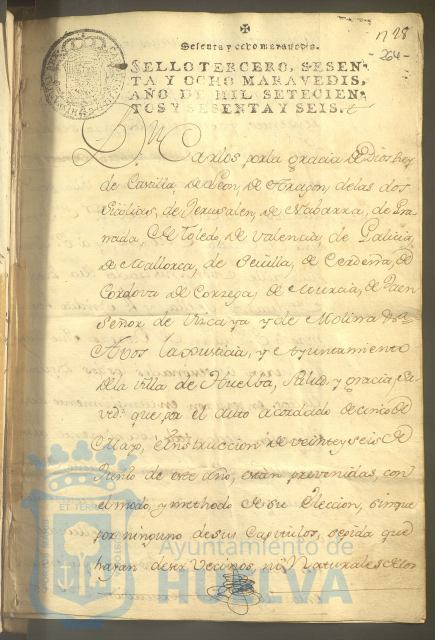 n 28
- 264 -
Sesenta y ocho maravedis.
SELLO TERCERO, SESEN-
TA Y OCHO MARAVEDIS,
AÑO DE MIL SETECIEN-
TOS Y SESENTA Y SEIS.
Dn Carlos por la gracia de Dios Rey
de Castilla, de Leon, de Aragon, de las dos
Sicilias, de Jerusalen, de Nabarra, de Gra
nada de Toledo, de Valencia, de Galicia,
de Mallorca, de Sevilla, de Cerdeña, de
Cordova de Corzega, de Murcia, de Jaen
Señor de Vizcaya y de Molina &a
A vos la Justicia, y Ayuntamiento
de la Villa de Huelba, Salud y gracia, Sa
ved: que por el Auto acordado de cinco de
Mayo, e Instruccion de veinte y seis de
Junio de este año, estan prevenidas, con
el modo, y methodo de su Eleccion, sin que
por ninguno de sus Capitulos, se pida que
hayan de ser Vecinos, ni Naturales de los
Ayuntamiento de
HUELVA